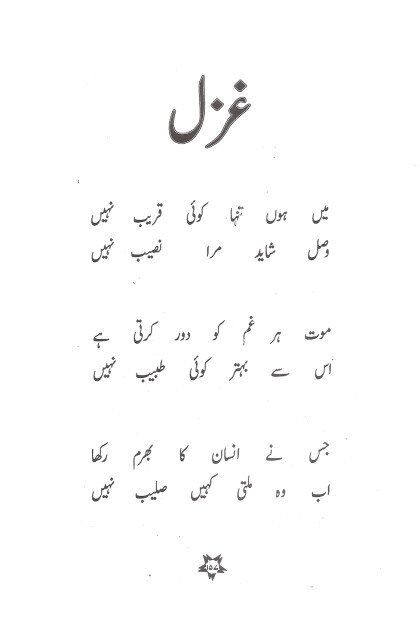 غزل
میں ہوں تنہا کوئی قریب نہیں
وصل شاید مرا نصیب نہیں
موت ہر غم کو دور کرتی ہے
اس سے بہتر کوئی طبیب نہیں
جس نے انسان کا بھرم رکھا
اب وہ ملتی کہیں صلیب نہیں
۱۵۷